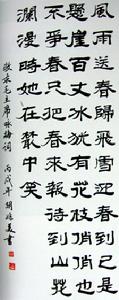 風雨送春歸飛雪迎春到已是
懸崖百丈冰猶有花枝俏俏
不爭春只把春來報待到山花
爛漫時她在叢中笑
敬录毛主席咏梅詞 丙戌年 胡 美書